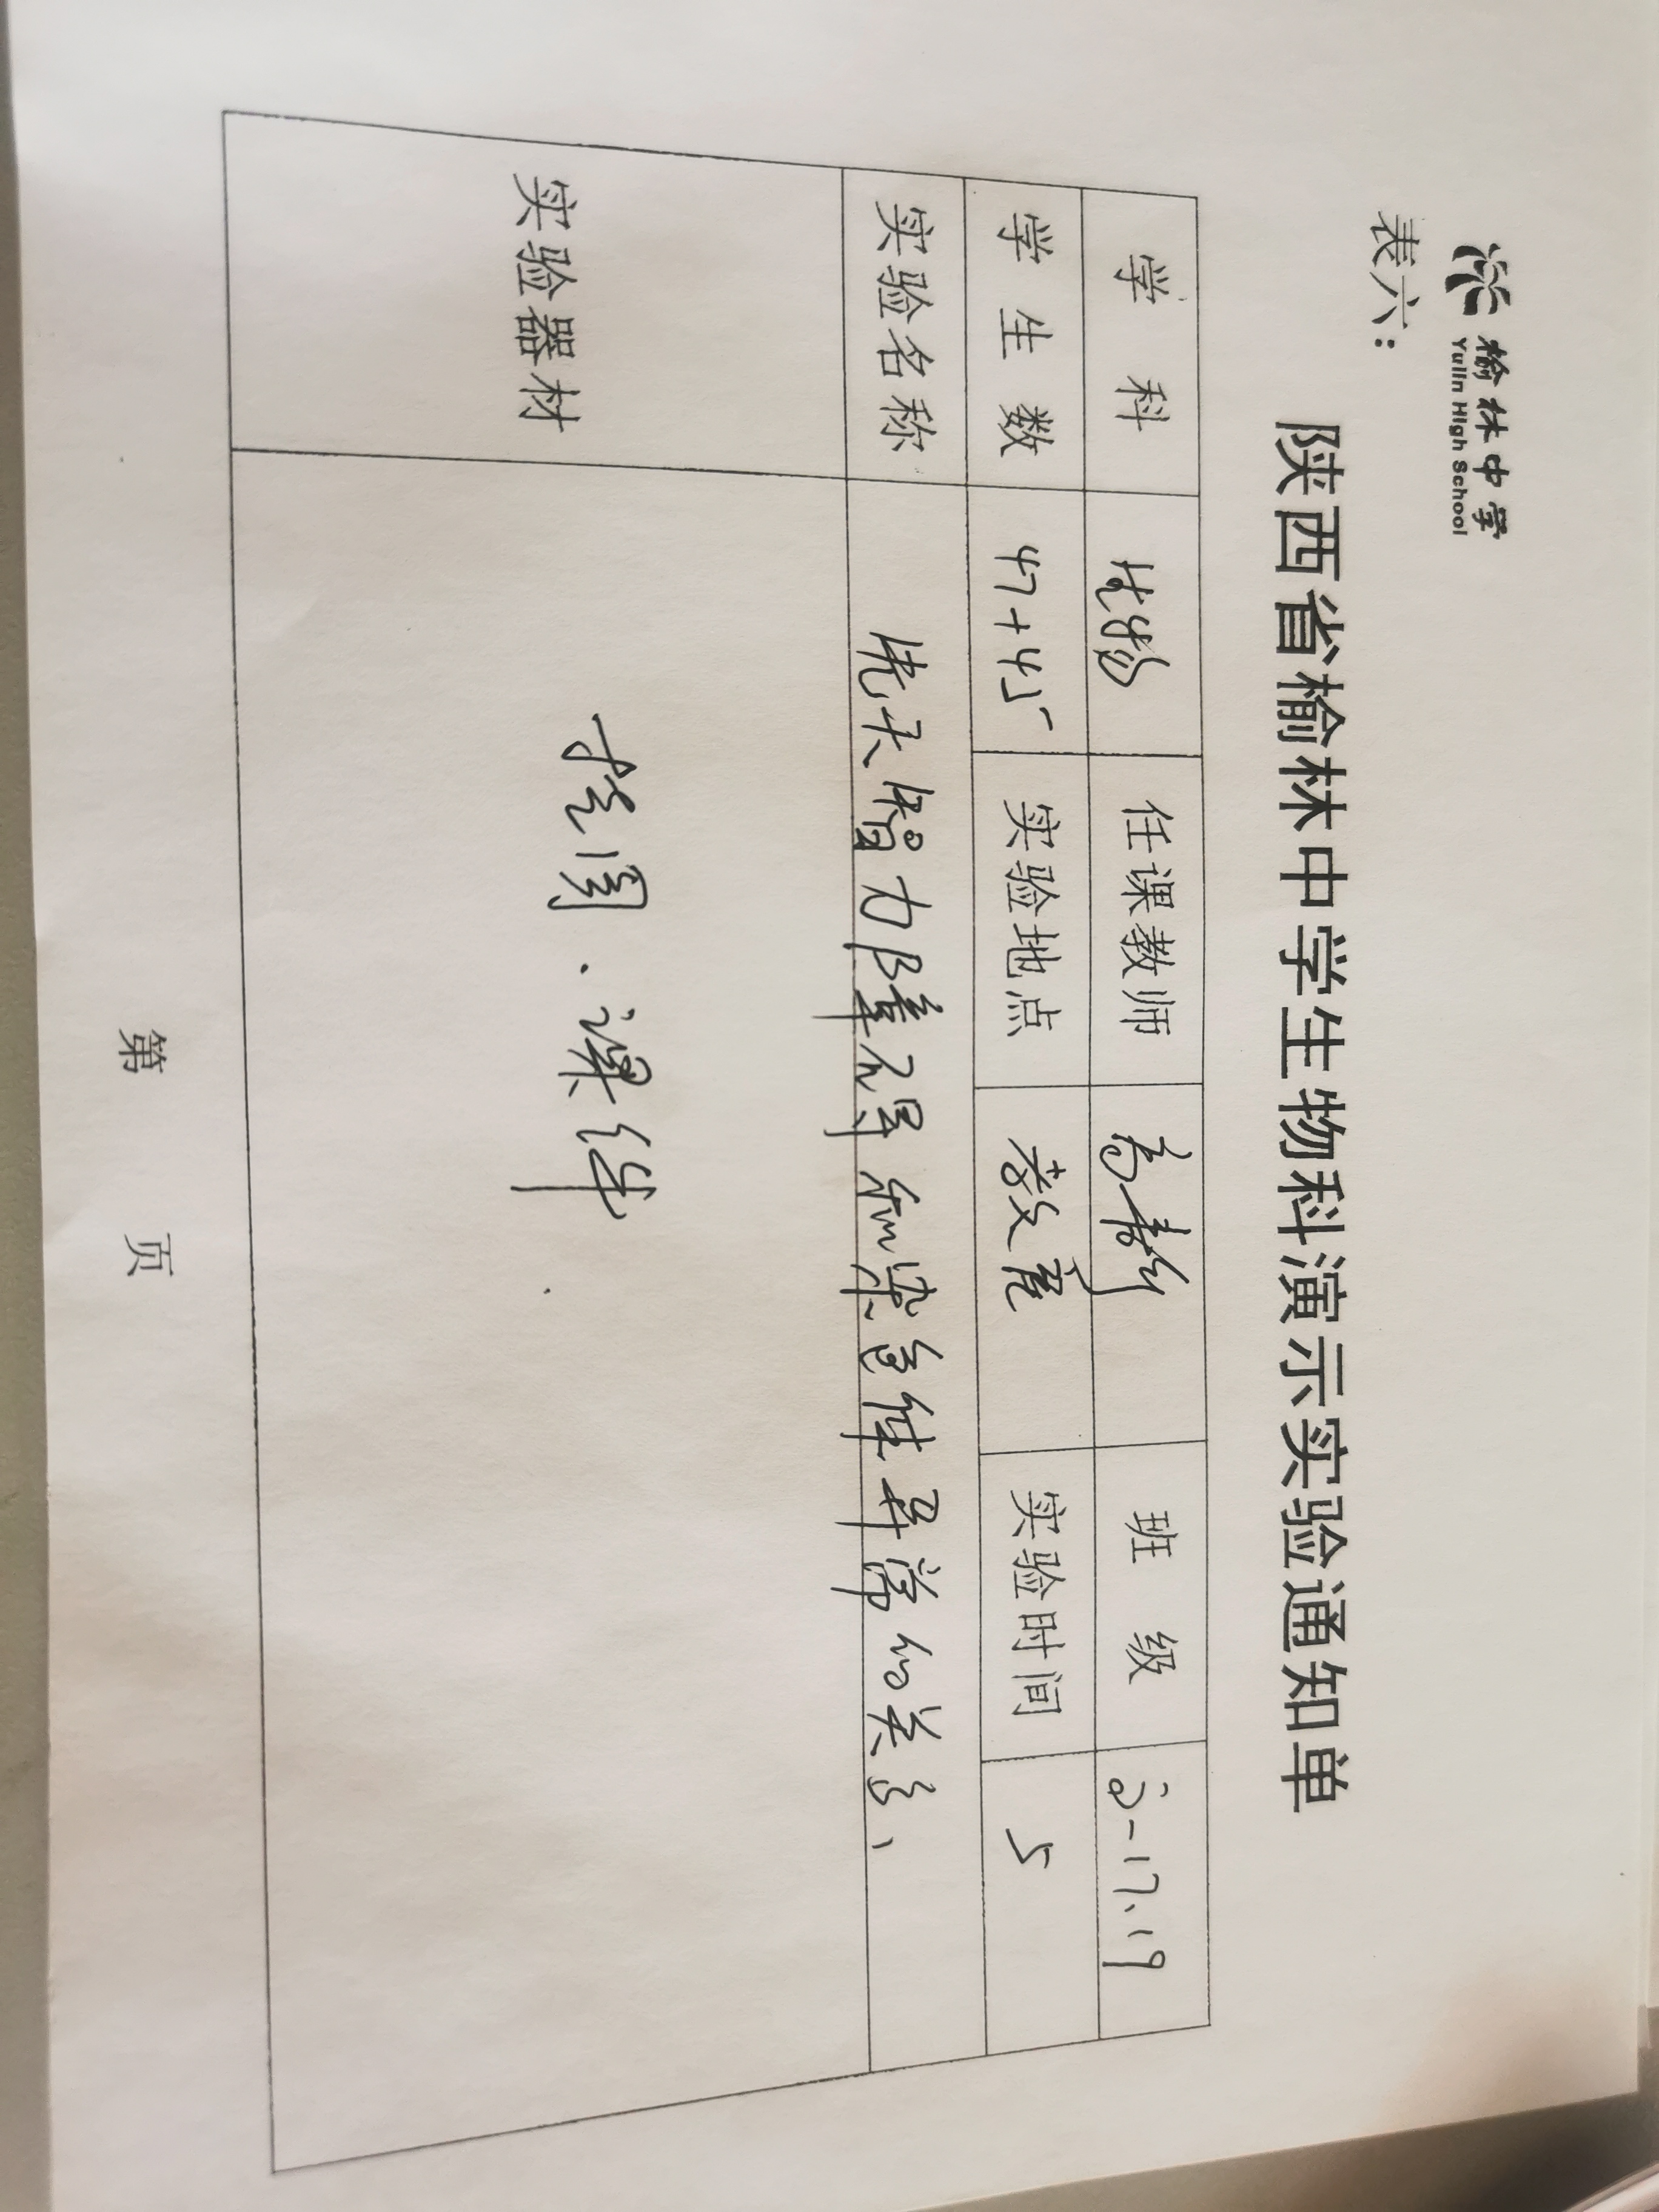 榆林中学
Yulin High School
表六:
陕西省榆林中学生物科演示实验通知单
学 科 生物 任课教师 班 级 高二-17、19
学 生 数 47+45 实验地点 教室 实验时间 5
实验名称 先天智力障碍和染色体异常的关系、
实验器材 挂图、课件
第 页